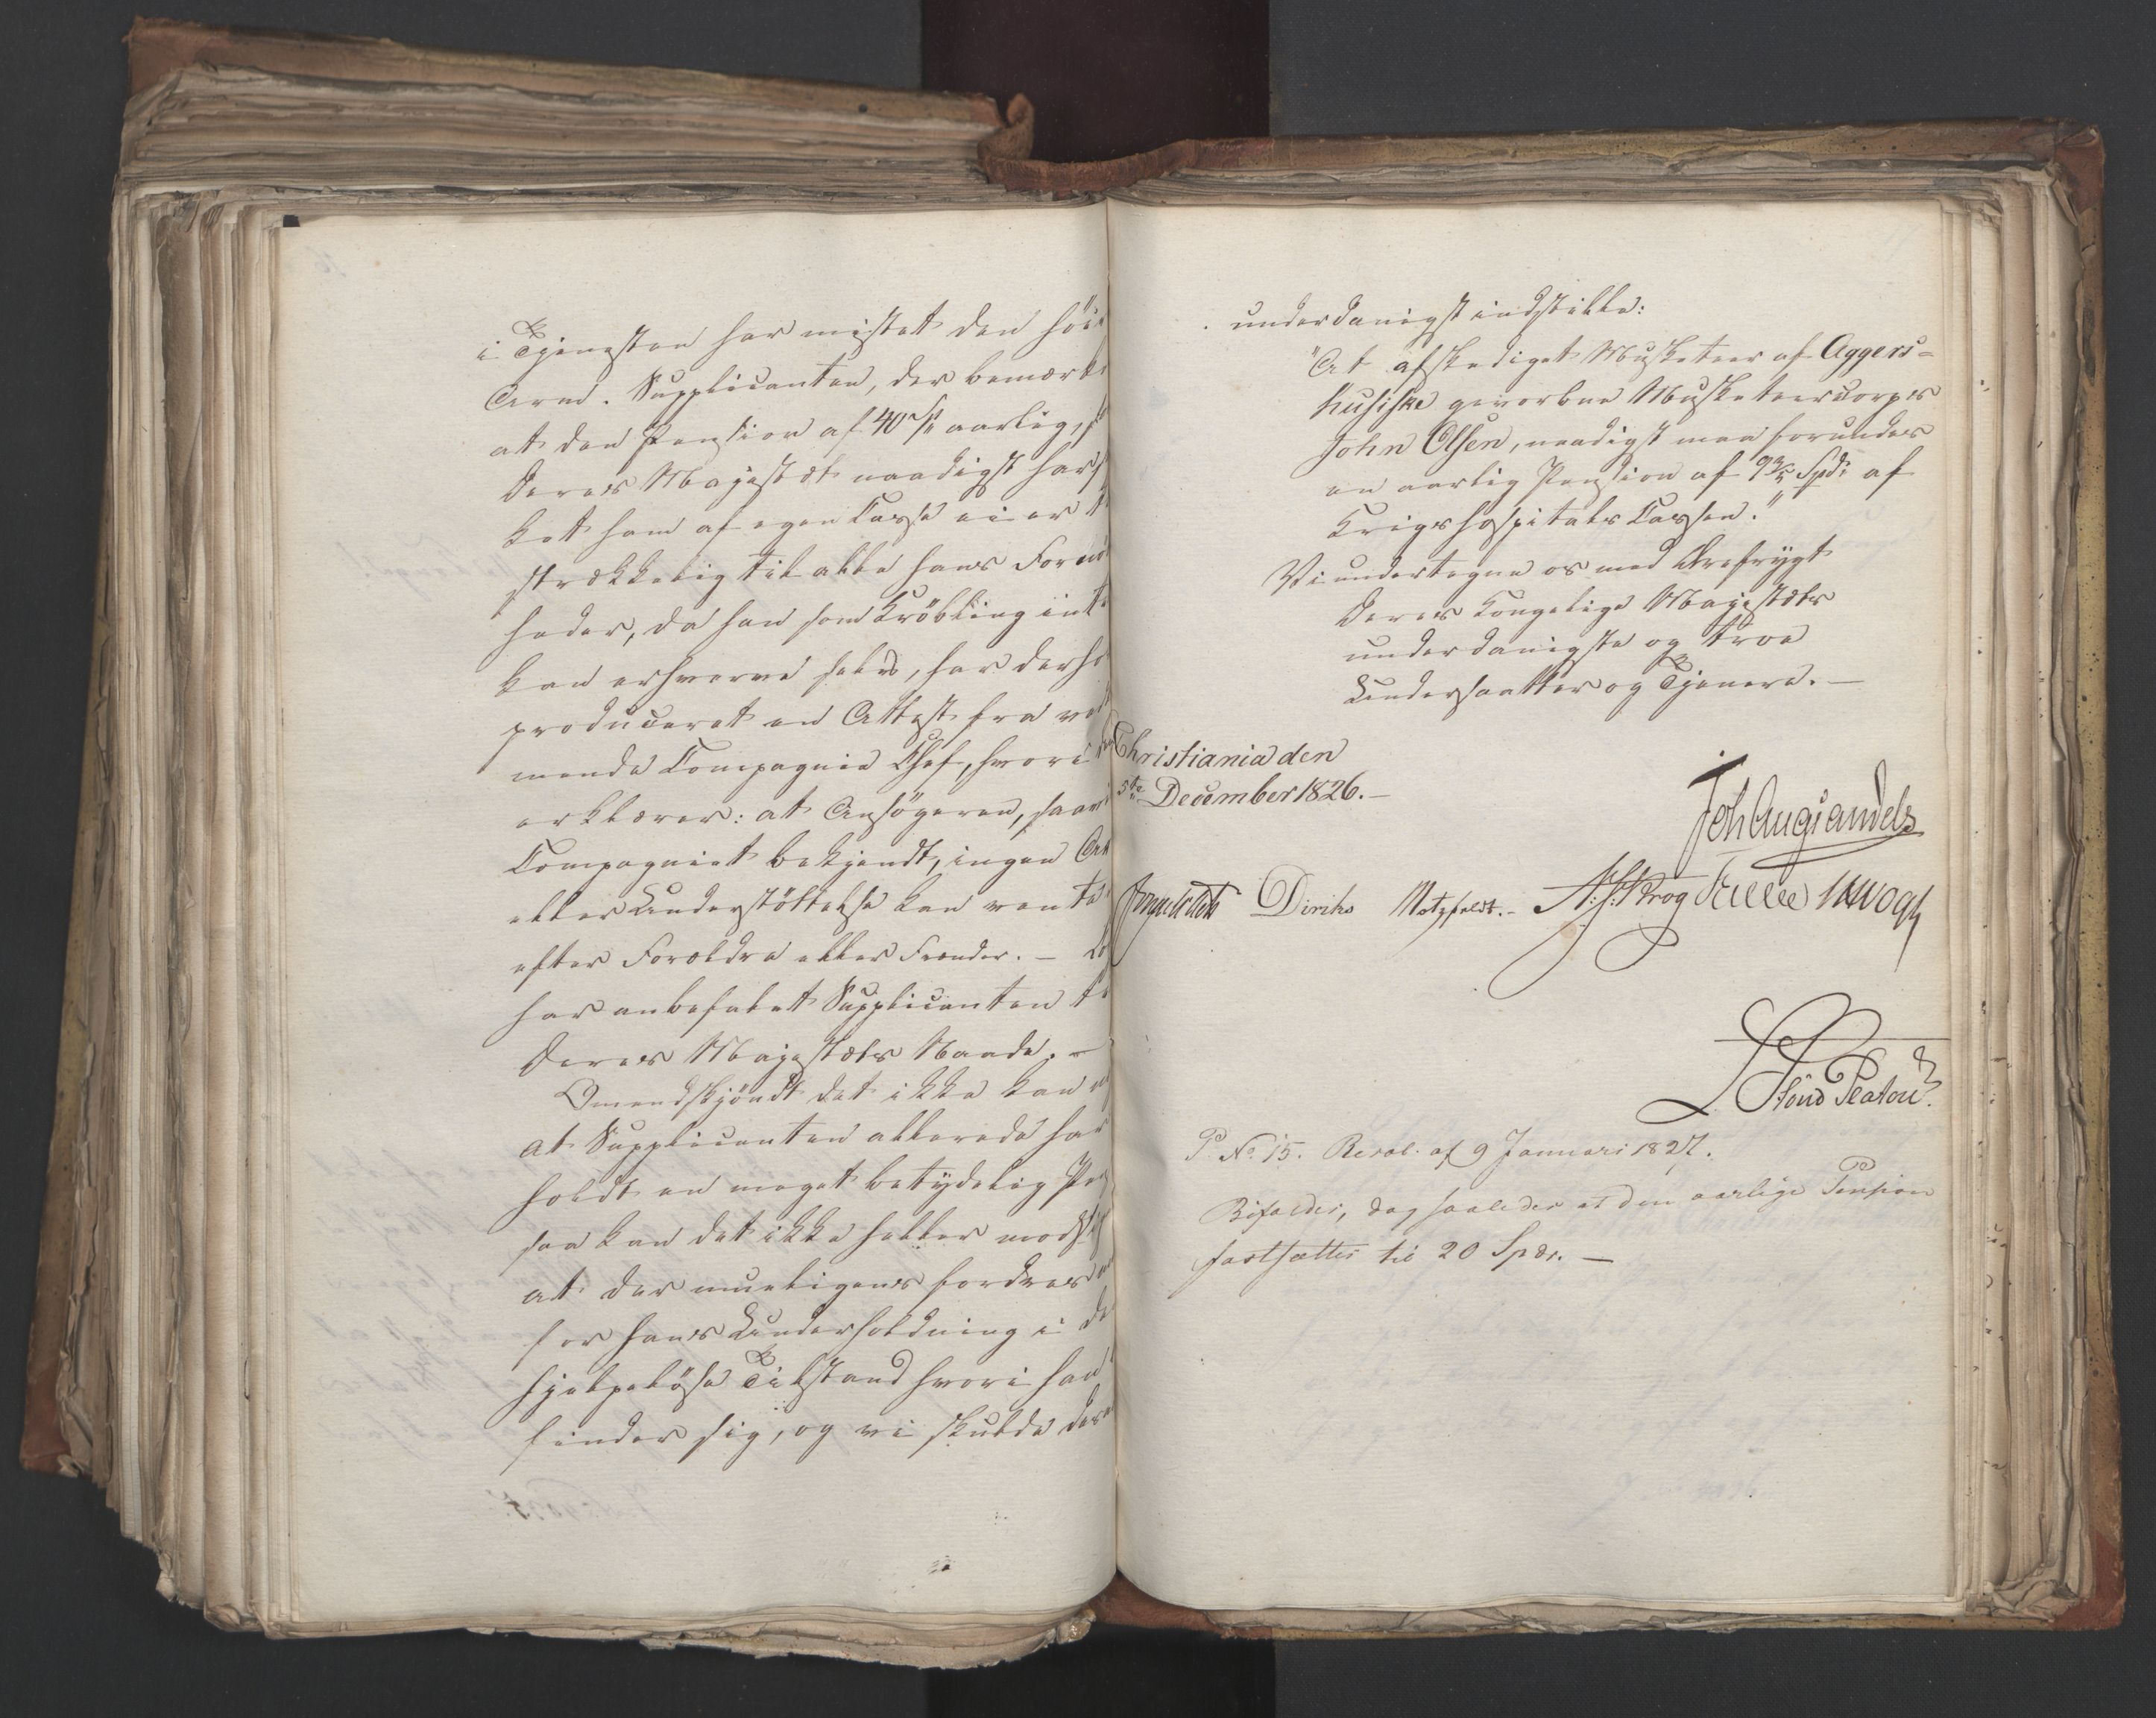 i Tjenesten har mistet den höi
Arm. Supplicanten, der bemærke
at den Pension af 40 Sp aarlig, s
Deres Majestæt naadigst har s
ket ham af egen Casse ei er ti
strækkelig til alle hans Fornö
heder, da han som Kröbling int
kan erhverve selv, har derho
produceret en Attest fra ved
mende Compagnie Chef, hvori
erklærer: at Ansögeren, saavi
Compagniet bekjendt, ingen Arv
eller Understöttelse kan vente
efter Forældre eller Frænder. –
har anbefalet Supplicanten ti
Deres Majestæts Naade. –
Omendskjöndt det ikke kan
at Supplicanten allerede har
holdt en meget betydelig Pen
saa kan det ikke heller mods
at der nueligens fordres
for hans Underholdning i de
hjelpelöse Tilstand hvori han
finder sig, og vi skulde der
underdanigst indstille:
"At afskediget Musketeer af Aggers=
huusiske gevorbne Musketeercorps
John Olsen, naadigst maa forundes
en aarlig Pension af 9 3/5 Spd: af
Krigshospitals Cassen."
Vi undertegne os med Ærefrygt
Deres Kongelige Majestæts
underdanigste og troe
Undersaatter og Tjenere. –
Christiania den
5te December 1826. –
Joh Aug Sandels
Diriks Motzfeldt. – Krog JHVogt
P. No. 15. Resol. af 9 Januari 1827.
Bifaldes, dog saaledes at den aarlige Pension
fastsættes til 20 Spdr. –